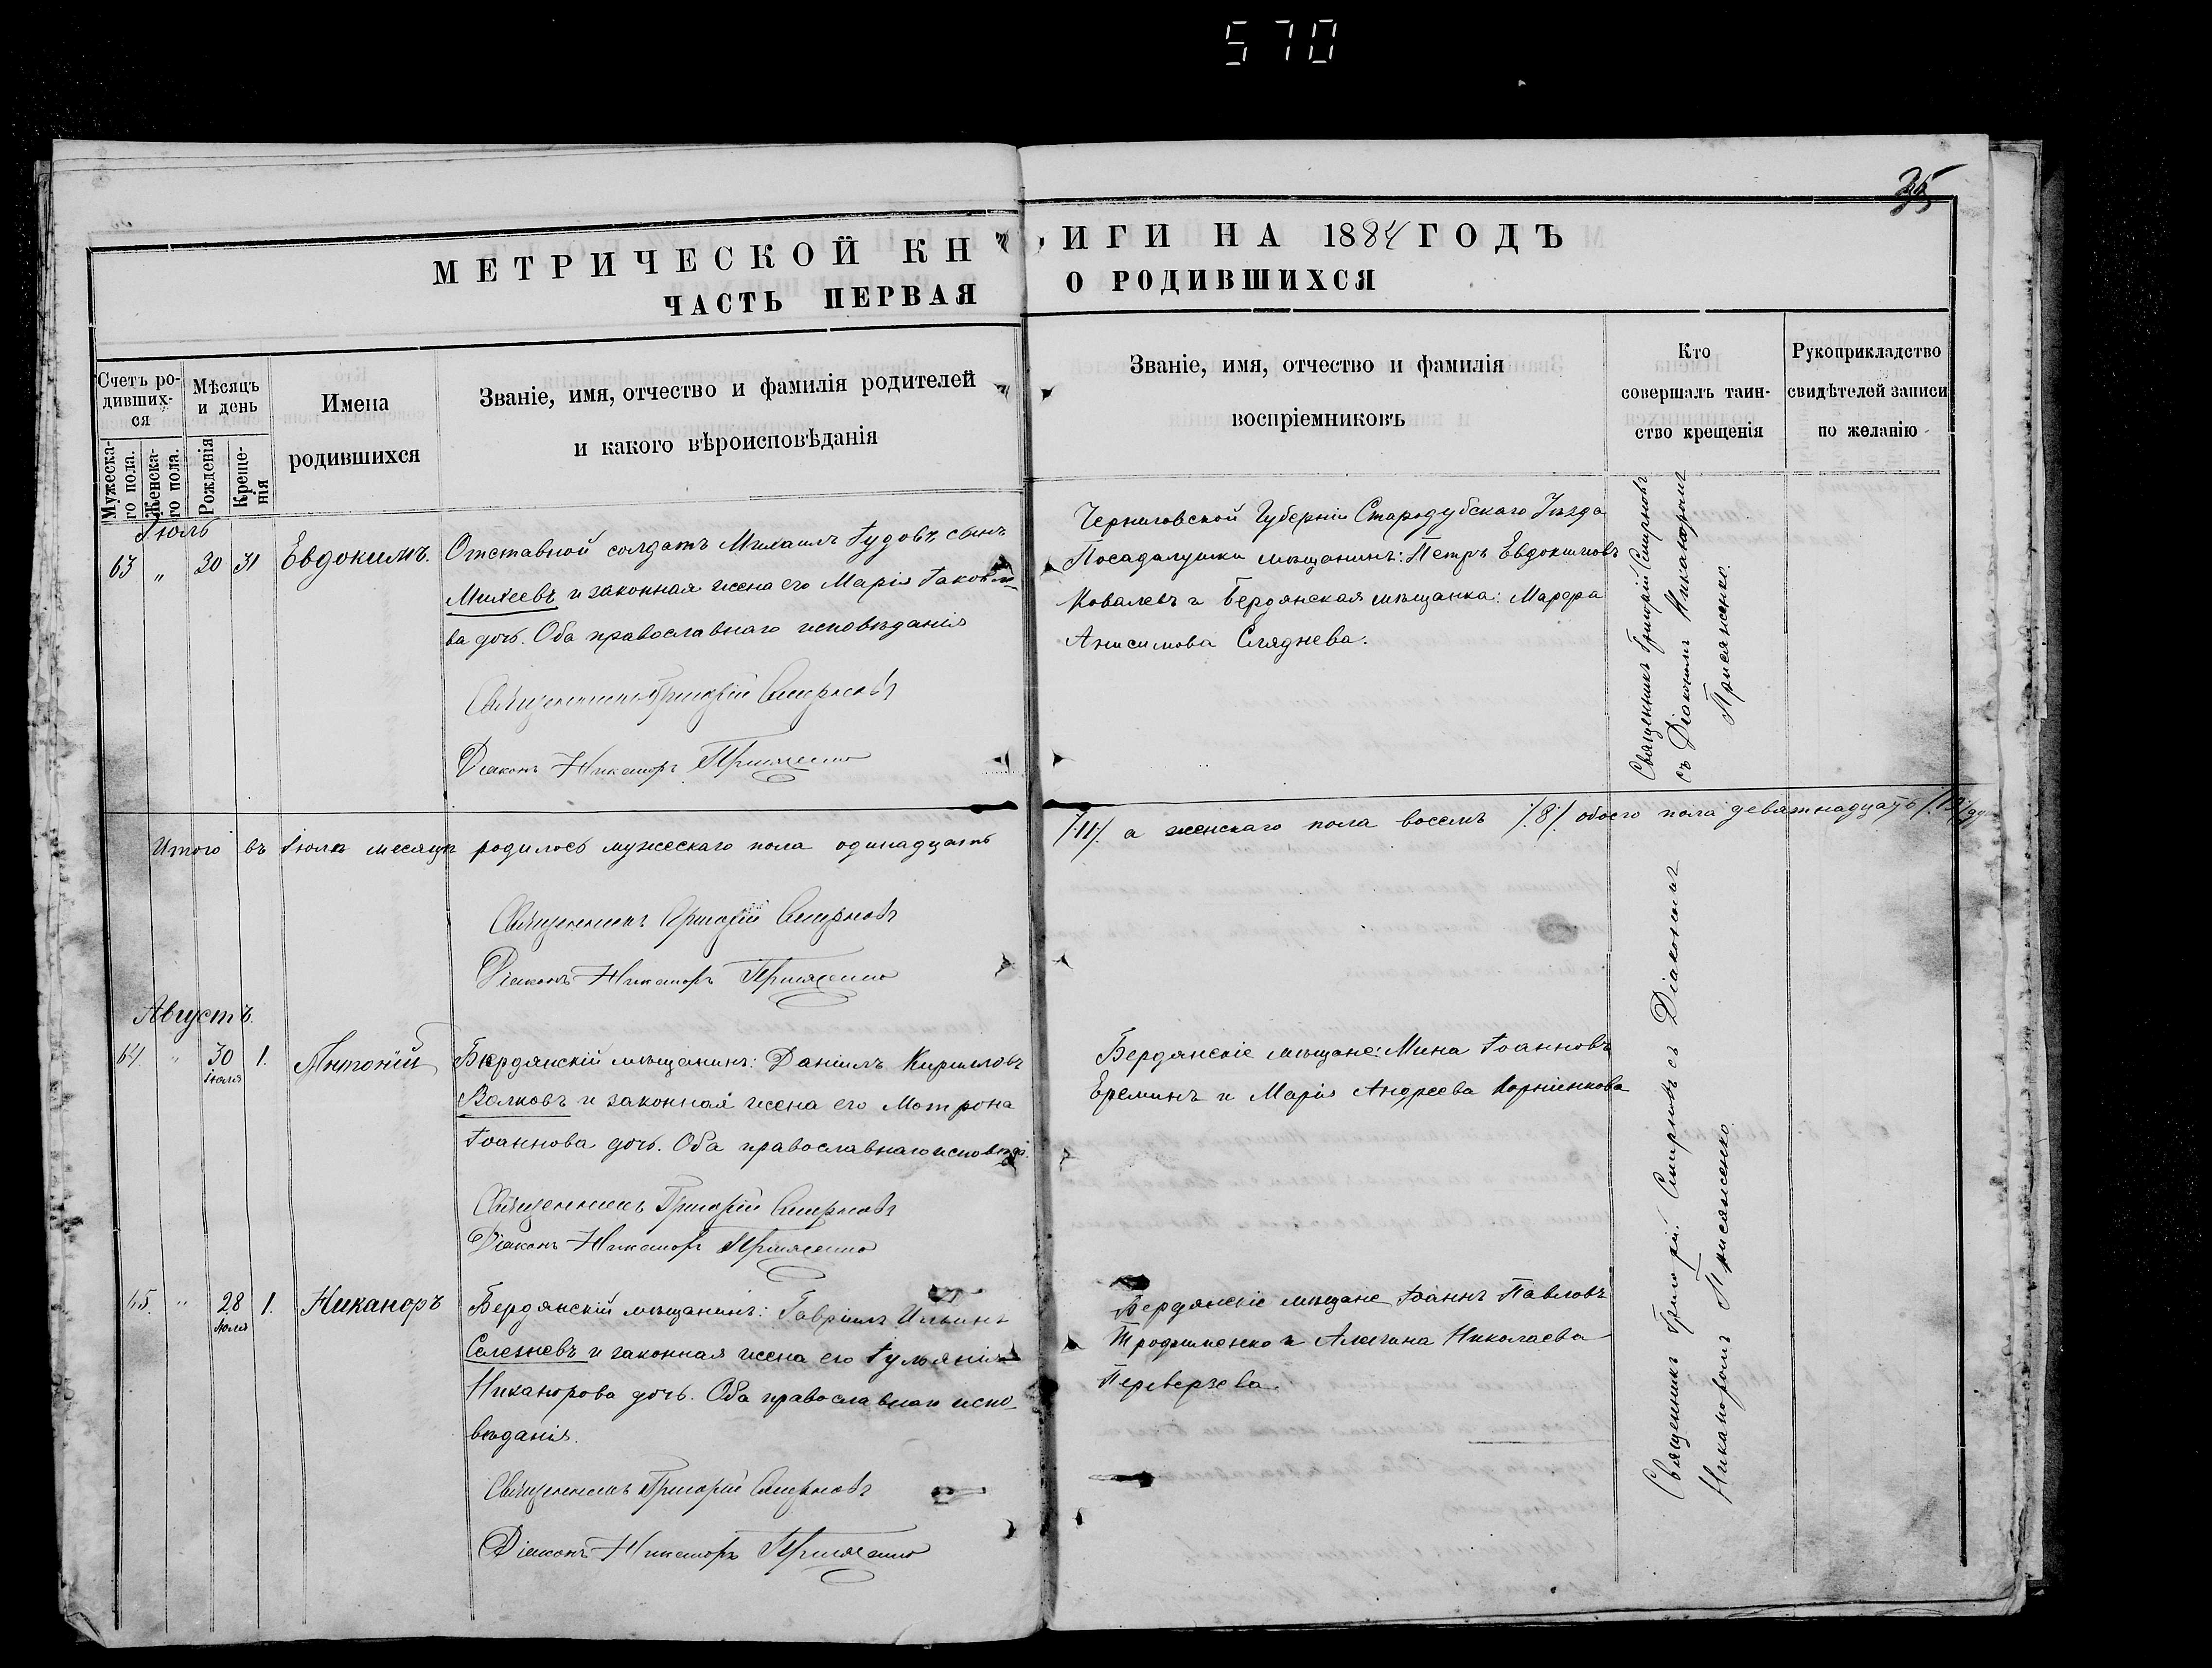 570
35
МЕТРИЧЕСКОЙ КНИГИ НА 1884 ГОДЪ
ЧАСТЬ ПЕРВАЯ О РОДИВШИХСЯ
Счетъ ро-
дивших-
ся
Мужеска-
го пола.
Женска-
го пола.
Мѣсяцъ
и день
Рожденія
Креще-
нія
Имена
родившихся
Званіе, имя, отчество и фамилія родителей
и какого вѣроисповѣданія
Званіе, имя, отчество и фамилія
воспріемниковъ
Кто
совершалъ таин-
ство крещенія
Рукоприкладство
свидѣтелей записи
по желанію
Іюль
63 " 30 31 Евдокимъ.
Отставной солдатъ Михаилъ Іудовъ сынъ
Михеевъ и законная жена его Марія Іаковле-
ва дочь. Оба православнаго исповѣданія
Священникъ Григорій Смирновъ
Діаконъ Никаноръ Присяженко
Черниговской Губерніи Стародубскаго Уѣзда
мѣщанинъ: Петръ Евдокимовъ
Ковалевъ и Бердянская мѣщанка: Марфа
Анисимова Сляднева.
Священникъ Григорій Смирновъ
съ Діакономъ Никаноромъ
Присяженко.
Итого въ Іюлѣ месяцѣ родилось мужескаго пола одинадцать
/.11./ а женскаго пола восемь /.8./ обоего пола девятнадцать /.19./
Священникъ Григорій Смирновъ
Діаконъ Никаноръ Присяженко
Августъ.
64. " 30 Іюля 1. Антоній
Бердянскій мѣщанинъ: Даніилъ Кирилловъ
Волковъ и законная жена его Матрона
Іоаннова дочь. Оба православнаго исповѣд.
Священникъ Григорій Смирновъ
Діаконъ Никаноръ Присяженко
Бердянскіе мѣщане: Мина Іоанновъ
Ереминъ и Марія Андреева Корніенкова
65. " 28 Іюля 1. Никаноръ
Бердянскій мѣщанинъ: Гавріилъ Ильинъ
Селезневъ и законная жена его Іульянія
Никанорова дочь. Оба православнаго испо-
вѣданія.
Священникъ Григорій Смирновъ
Діаконъ Никаноръ Присяженко
Бердянскіе мѣщане Іоаннъ Павловъ
Трофименко и Николаева
Переверзева.
Священникъ Григорій Смирновъ съ Діакономъ
Никаноромъ Присяженко